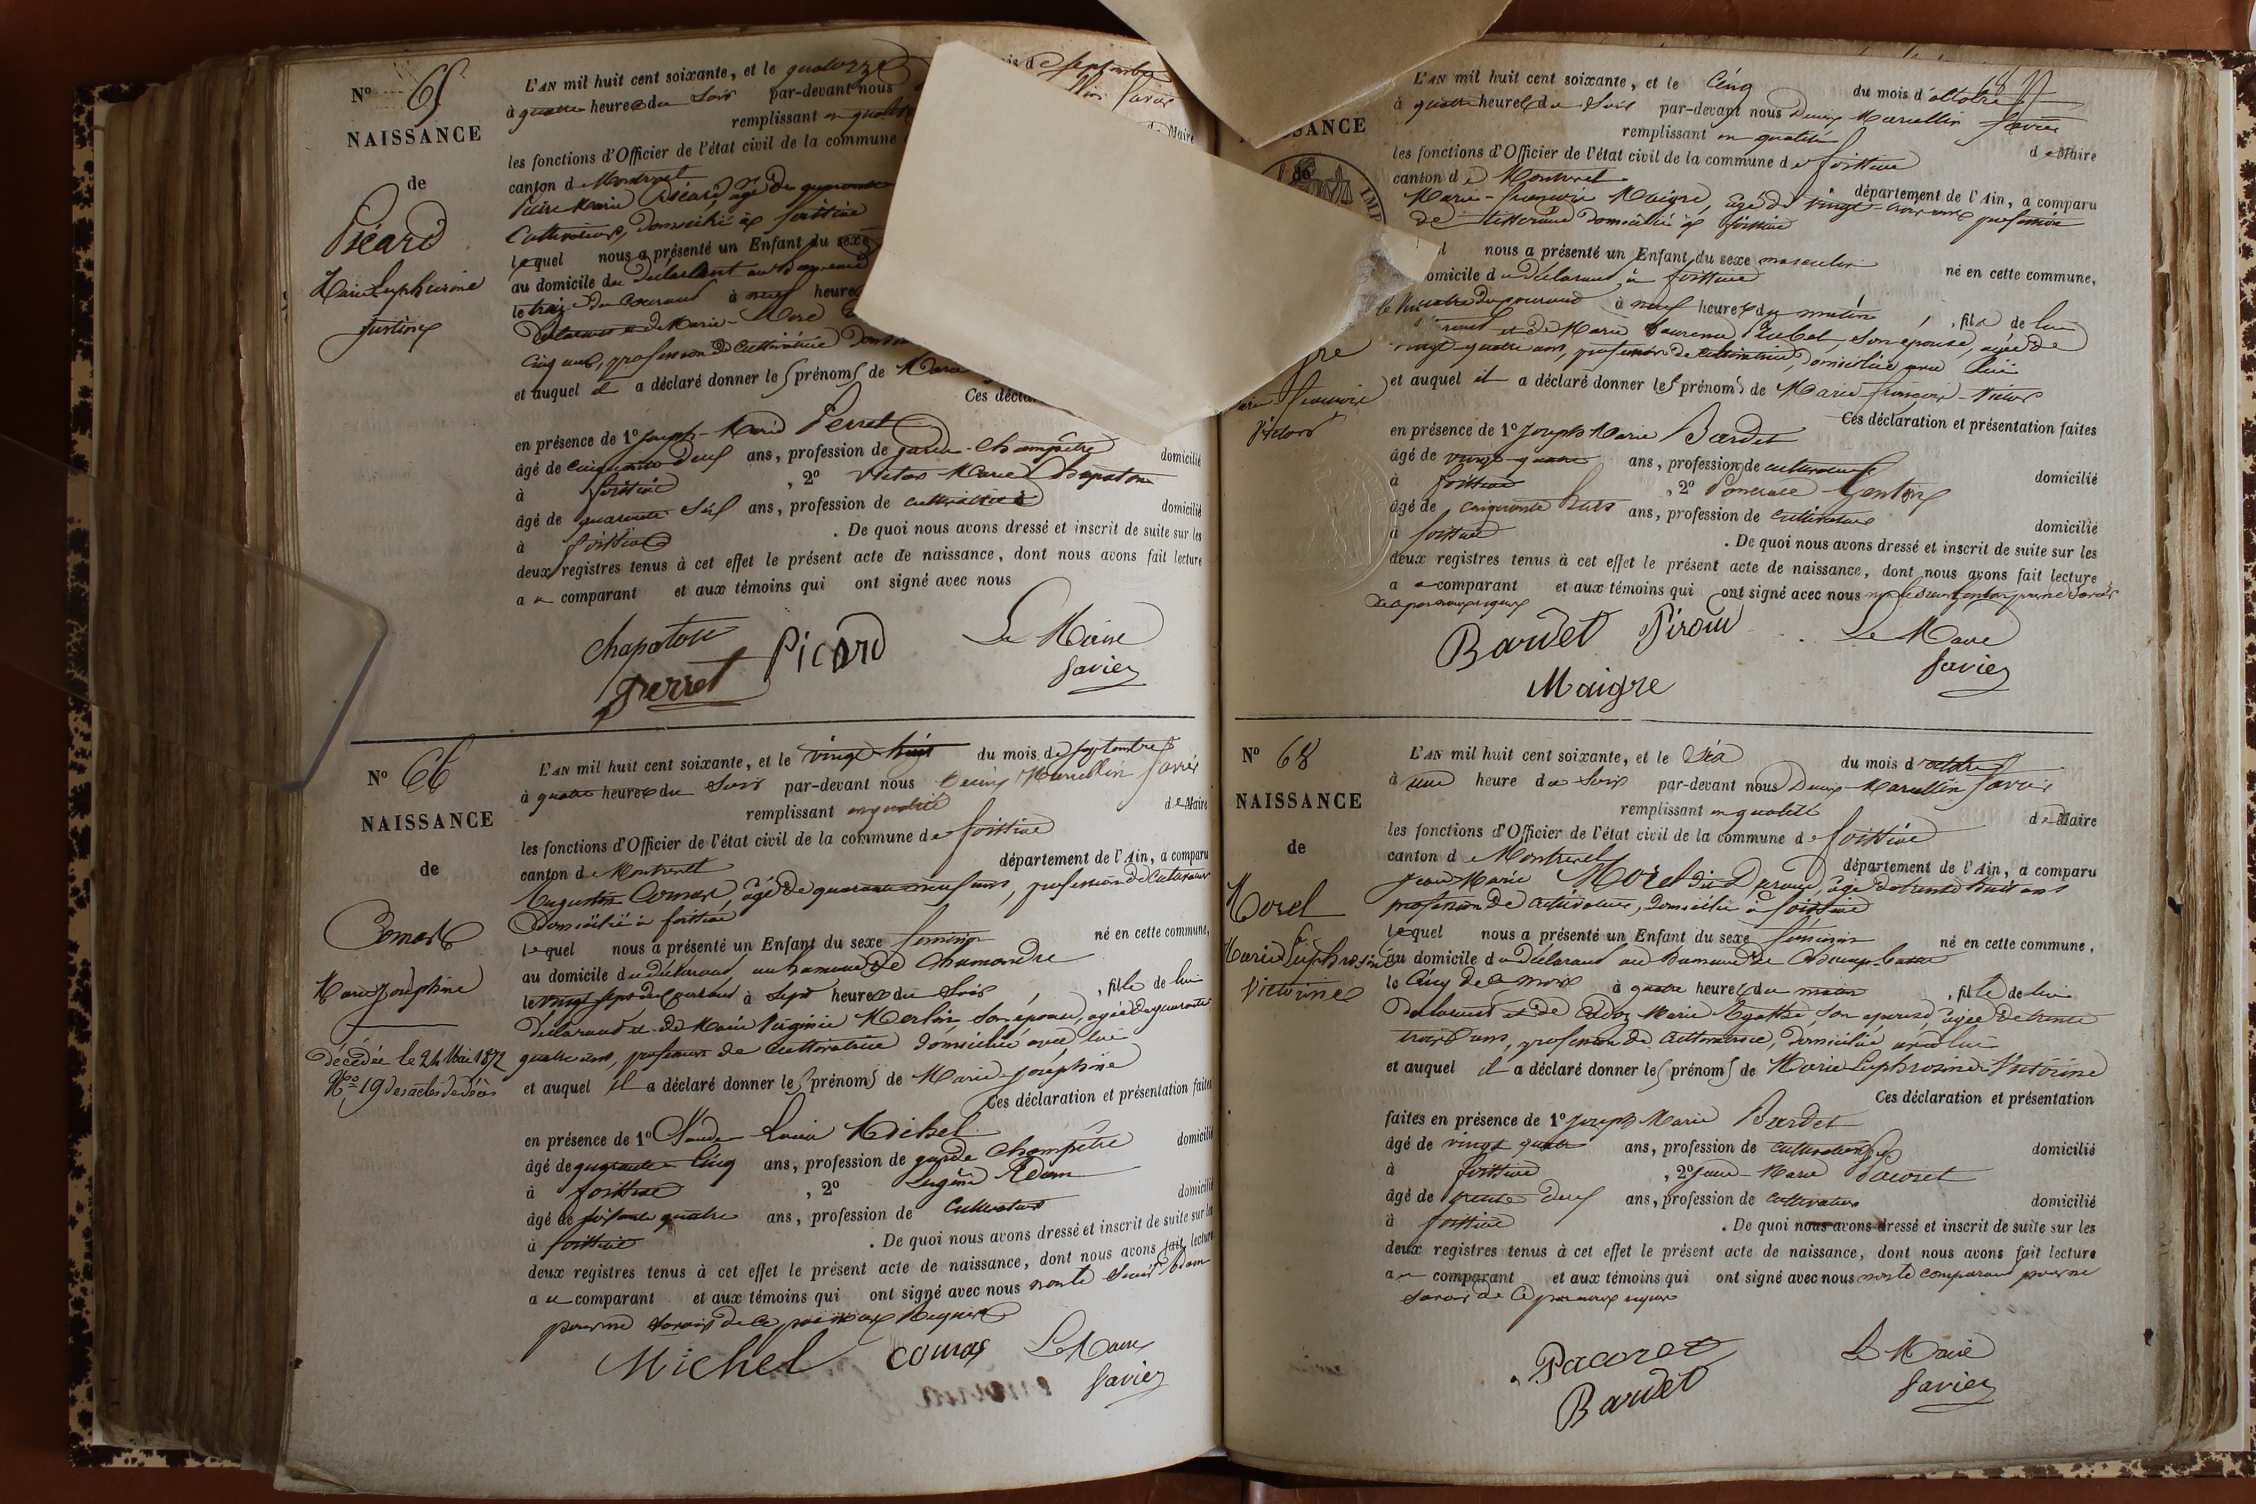 Nº 65
NAISSANCE
de
Picard
Marie Euphrosine
Justine
L'AN mil huit cent soixante, et le quatorze
à quatre heures du Soir par-devant nous
remplissant en qualité
les fonctions d'Officier de l'état civil de la commune
canton de Montrevel
Marie Picard, âgé de quarante
Cultivateur, domicilié à foissiat
lequel nous a présenté un Enfant du sexe
au domicile du déclarant au hameau
le treize du Courant à neuf heures
déclarant et de Marie
cinq ans, profession de Cultivatrice
et auquel il a déclaré donner les prénoms de Marie
Ces décla
en présence de 1º Joseph-Marie Perret
âgé de cinquante deux ans, profession de garde-Champêtre domicilié
à foissiat, 2º Victor-Marie Chapaton
âgé de quarante six ans, profession de cultivateur domicilié
à foissiat. De quoi nous avons dressé et inscrit de suite sur les
deux registres tenus à cet effet le présent acte de naissance, dont nous avons fait lecture
au comparant et aux témoins qui ont signé avec nous
Chapaton
Perret
Picard
Le Maire
Favier
Nº 66
NAISSANCE
de
Comas
Marie Joséphine
Décédée le 24 Mai 1872
Nº 19 des actes de décès
L'AN mil huit cent soixante, et le vingt huit du mois de septembre
à quatre heures du Soir par-devant nous Denis Marcellin Favier
remplissant en qualité de Maire
les fonctions d'Officier de l'état civil de la commune de foissiat
canton de Montrevel département de l'Ain, a comparu
Augustin Comas, âgé de quarante neuf ans, profession de Cultivateur
Domicilié à foissiat
lequel nous a présenté un Enfant du sexe féminin né en cette commune,
au domicile du déclarant, au hameau de Chamandre
le vingt sept du courant à sept heures du Soir, fille de lui
Déclarant et de Marie Virginie Merlin son épouse, agée de quarante
quatre ans, profession de cultivatrice domiciliée avec lui
et auquel il a déclaré donner les prénoms de Marie-Joséphine
Ces déclaration et présentation faites
en présence de 1º Claude Michel
âgé de quarante Cinq ans, profession de garde Champêtre domicilié
à foissiat, 2º Eugène Adam
âgé de soixante quatre ans, profession de Cultivateur domicilié
à foissiat. De quoi nous avons dressé et inscrit de suite sur les
deux registres tenus à cet effet le présent acte de naissance, dont nous avons fait lecture
au comparant et aux témoins qui ont signé avec nous non le Sieur Adam
pour ne savoir de ce par nous Requis
Michel
Comas
Le Maire
Favier
de septembre
Favier
de Maire
SANCE
de
IMP
Victor
L'AN mil huit cent soixante, et le Cinq du mois d'octobre
à quatre heures du Soir par-devant nous Denis Marcellin Favier
remplissant en qualité de Maire
les fonctions d'Officier de l'état civil de la commune de foissiat
canton de Montrevel département de l'Ain, a comparu
Marie-françois Maigre, âgé de vingt-trois ans profession
de domicilié à foissiat
nous a présenté un Enfant du sexe masculin né en cette commune,
omicile du déclarant, à foissiat
le quatre du courant à neuf heures du matin, fils de lui
et de Marie Laurence son épouse, agée de
vingt quatre ans, profession de cultivatrice, domiciliée avec lui
et auquel il a déclaré donner les prénoms de Marie-françois-Victor
Ces déclaration et présentation faites
en présence de 1º Joseph Marie Bardet
âgé de vingt-quatre ans, profession de cultivateur domicilié
à foissiat, 2º Genton
âgé de cinquante huit ans, profession de Cultivateur domicilié
à foissiat. De quoi nous avons dressé et inscrit de suite sur les
deux registres tenus à cet effet le présent acte de naissance, dont nous avons fait lecture
au comparant et aux témoins qui ont signé avec nous
Bardet
Maigre
Le Maire
Favier
Nº 68
NAISSANCE
de
Morel
Marie Euphrosine
Victorine
L'AN mil huit cent soixante, et le Six du mois d'octobre
à une heure du Soir par-devant nous Denis-Marcellin Favier
remplissant en qualité de Maire
les fonctions d'Officier de l'état civil de la commune de foissiat
canton de Montrevel département de l'Ain, a comparu
Jean Marie Morel dit âgé de trente huit ans
profession de cultivateur, domicilié à foissiat
lequel nous a présenté un Enfant du sexe féminin né en cette commune,
au domicile du déclarant au hameau de
le Cinq de ce mois à quatre heures du matin, fille de lui
déclarant et de Marie Agathe, son épouse, agée de trente
trois ans, profession de cultivatrice, domiciliée avec lui
et auquel il a déclaré donner les prénoms de Marie Euphrosine Victorine
Ces déclaration et présentation
faites en présence de 1º Joseph Marie Bardet
âgé de vingt quatre ans, profession de cultivateur domicilié
à foissiat, 2º Jean-Marie Pacoret
âgé de trente deux ans, profession de cultivateur domicilié
à foissiat. De quoi nous avons dressé et inscrit de suite sur les
deux registres tenus à cet effet le présent acte de naissance, dont nous avons fait lecture
au comparant et aux témoins qui ont signé avec nous non le comparant pour ne
savoir de ce par nous requis
Pacoret
Bardet
Le Maire
Favier